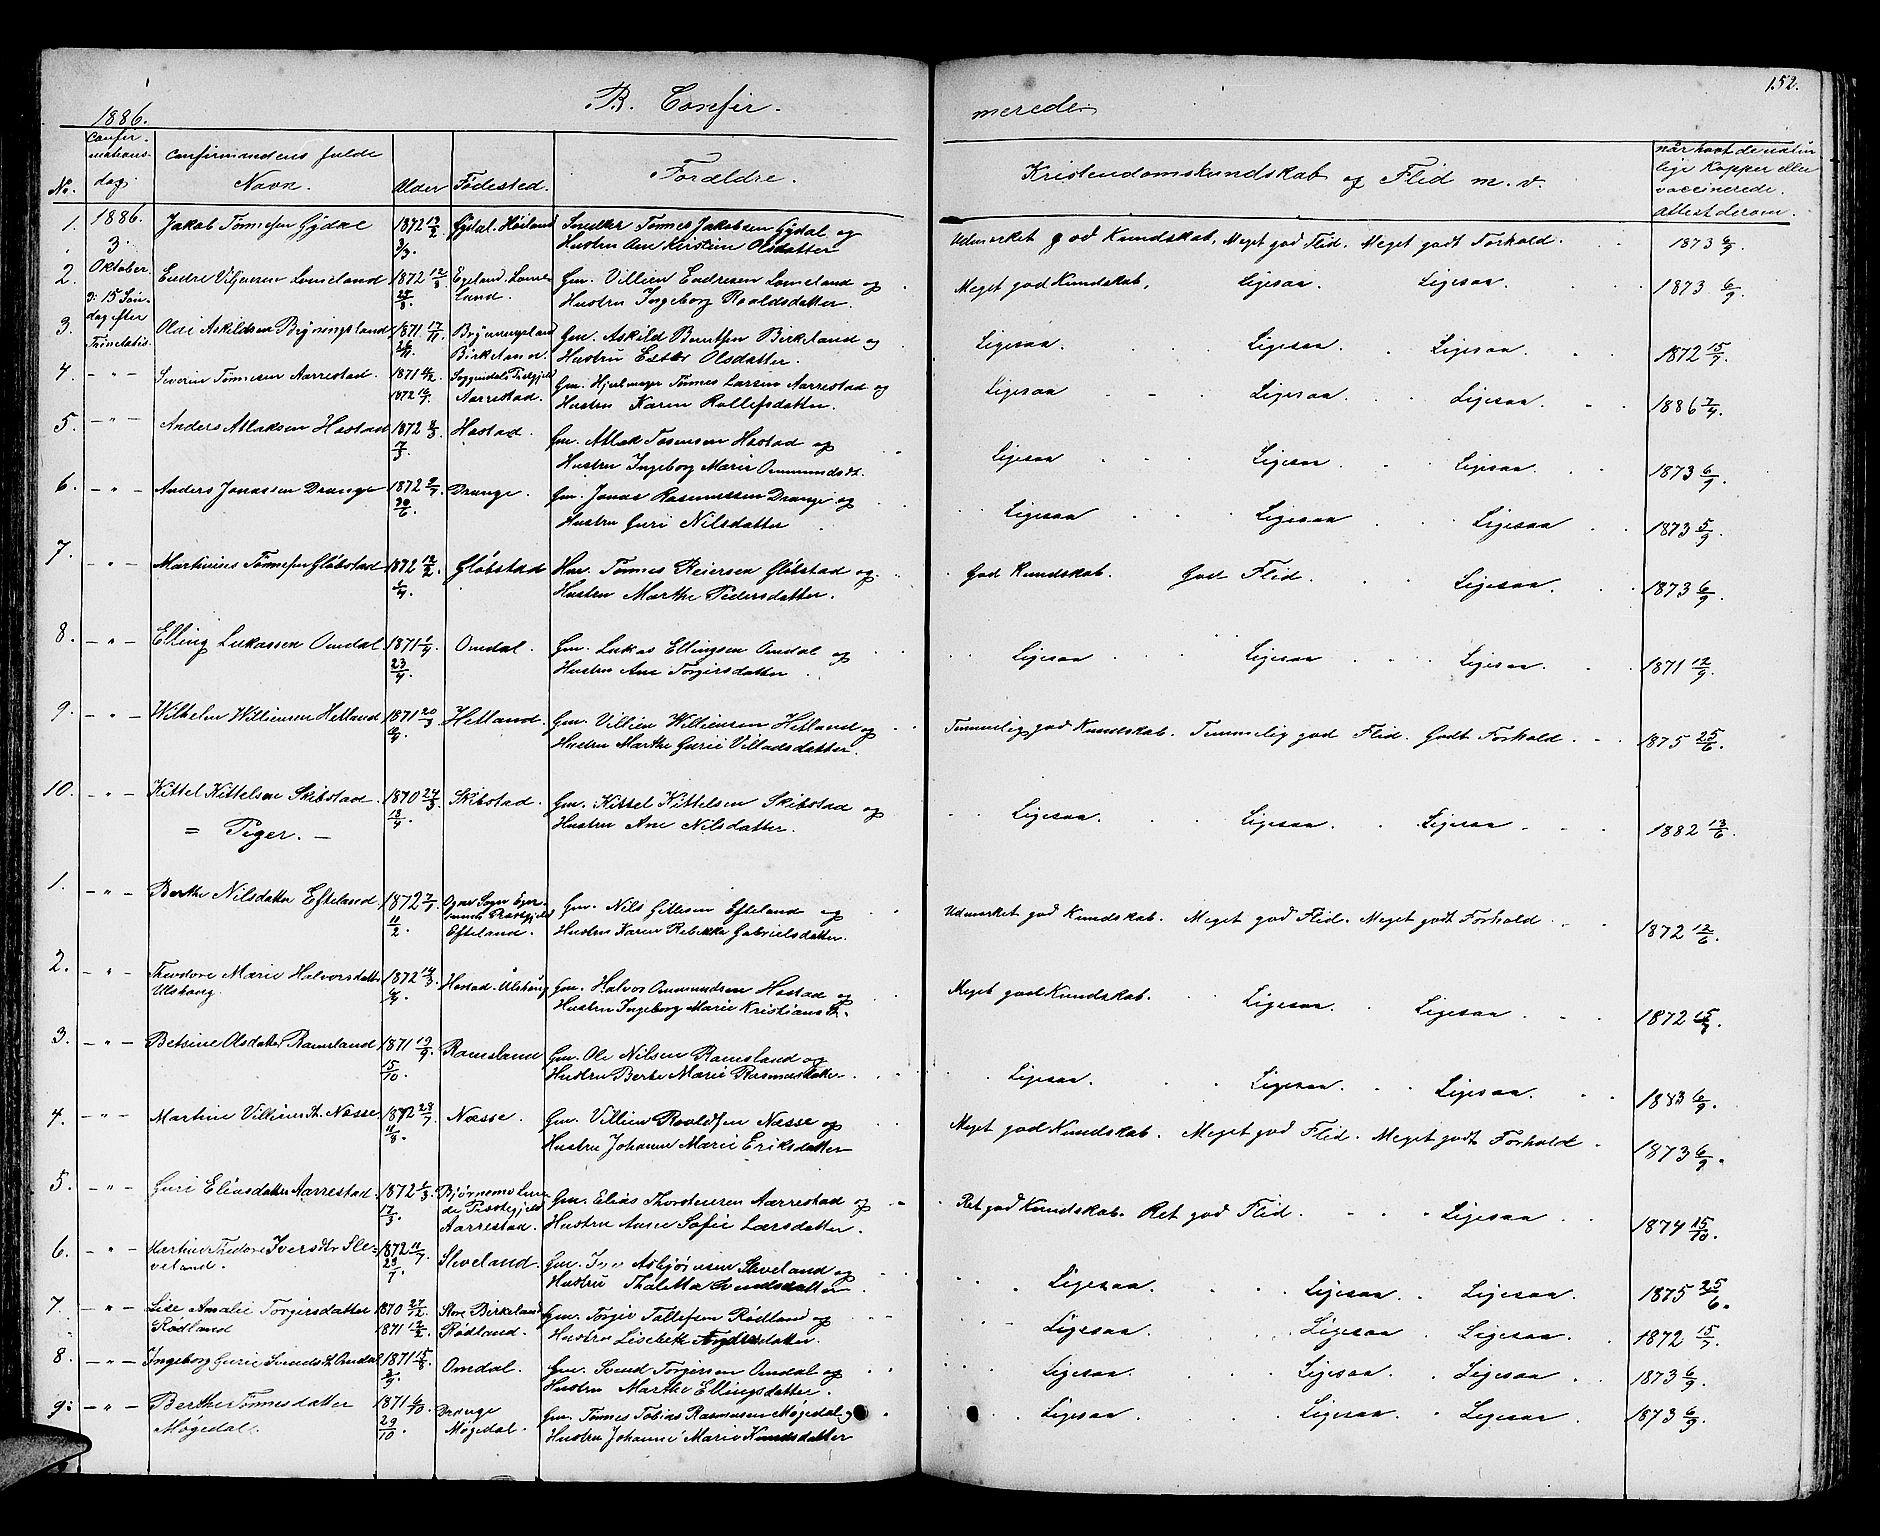 152.
1886.
B. Confir-
merede.
No.
Confir-
mations-
dag.
Confirmandens fulde
Navn.
Alder
Fødested.
Forældre.
Kristendomskundskab og Flid m. v.
lige Kopper eller
vaccinerede.
Attest derom.
1. 1886. Jakob Tønnesen Gydal 1872 Gydal. Høiland Tønnes Jakobsen Gydal og
3. Hustru Ane Kirstine Olsdatter
Udmærket god Kundskab. Meget god Flid. Meget godt Forhold. 1873 6/9.
2. Oktober Endre Viljensen Lomeland 1872 12/8 Egeland. Lome- Gm. Villien Endresen Lomeland og
3: 15 Søn- land. Hustru Ingeborg Roaldsdatter.
Meget god Kundskab, Ligesaa. Ligesaa. 1873 6/9.
dag efter
3. Trinitatis. Askildsen Bryningsland 1871 17/11 Bryningsland Gm. Askild Berntsen Birkeland og
Birkeland. Hustru Ester Olsdatter.
Ligesaa. Ligesaa. Ligesaa. 1872 15/7.
4. - " - Severin Tønnesen Aarrestad. 1871 Soggendals Prstgjeld Gm. Hjulmager Tønnes Larsen Aarrestad og
1872 Aarrestad. Hustru Karen Rollefsdatter.
Ligesaa Ligesaa. Ligesaa. 1886 7/4.
5. - " - Anders Atlaksen Hostad 1872 Hostad. Gm. Atlak Tosensen Hostad og
7/3 Hustru Ingeborg Marie Ommundsdt.
Ligesaa Ligesaa Ligesaa. 1873 6/9.
6. - " - Anders Jonassen Drange 1872 Drange. Gm. Jonas Rasmussen Drange og
30/6. Hustru Guri Nilsdatter
Ligesaa Ligesaa Ligesaa 1873 5/9.
7. - " - Martinius Tønnesen Gløbstad 1872 12/2. Gløbstad Tønnes Reiersen Gløbstad og
Hustru Marthe Pedersdatter.
God Kundskab. God Flid. Ligesaa. 1873 6/9.
8. - " - Elling Lukassen Omdal 1871 1/4 Omdal. Gm. Lukas Ellingsen Omdal og
23/4. Hustru Ane Torgersdatter
Ligesaa Ligesaa Ligesaa. 1871 12/9.
9. - " - Wilhelm Williensen Hetland 1871 20/3 Hetland. Gm. Villien Williensen Hetland og
Hustru Marthe Gurie Villadsdatter.
Temmelig god Kundskab. Temmelig god Flid. Godt Forhold. 1875 25/6.
10. - " - Kittel Kittelsen Skibstad. 1870 24/3 Skibstad. Gm. Kittel Kittelsen Skibstad og
18/4. Hustru Ane Nilsdatter.
Ligesaa. Ligesaa. Ligesaa 1882 13/6.
= Piger. -
1. - " - Berthe Nilsdatter Efteland 1872 7/1. Ogne Sogn Eger- Gm. Nils Gitlesen Efteland og
11/2. sunds Prstgjeld
Efteland. Hustru Karen Rebekke Gabrielsdatter.
Udmærket god Kundskab. Meget god Flid. Meget godt Forhold. 1872 12/6.
2. - " - Theodore Marie Halvorsdatter 1872 14/3. Hostad. Ulshaug Gm. Halvor Ommundsen Hostad og
Ulshaug. Hustru Ingeborg Marie Kristiansdt.
Meget god Kundskab. Ligesaa. Ligesaa. 1872 15/7.
3. - " - Betsine Olsdatter Ramsland 1871 19/9. Ramsland Gm. Ole Nilsen Ramsland og
15/10 Hustru Berte Marie Rasmusdatter
Ligesaa. Ligesaa. Ligesaa. 6/9.
4. - " - Martine Villiensdt. Næsse 1872 23/7 Næsse. Gm. Villien Roaldsen Næsse og
11/8. Hustru Johanne Marie Eriksdatter
Meget god Kundskab. Meget god Flid. Meget godt Forhold 1873 6/9.
5. - " - Guri Eliasdatter Aarrestad. 1872 1/3. Bjørnemo Lun- Gm. Elias Thorstensen Aarrestad og
17/3. de Prstegjeld
Aarrestad. Hustru Anne Sofie Larsdatter.
Ret god Kundskab. Ret god Flid. Ligesaa 1874 15/10.
6. - " - Martine Theodore Iversdtr Sle- 1872 11/7 Sleveland. Gm. Iver Asbjørnsen Sleveland og
veland. 29/7. Hustru Thaletta Svendsdatter
Ligesaa Ligesaa Ligesaa. 1875 25/6.
7. - " - Lise Amalie Torgirsdatter 1870 27/12. Store Birkeland Gm. Torgir Tallefsen Rødland og
Rødland 1871 12/2. Rødland. Hustru Lisebeth Andersdatter.
Ligesaa. Ligesaa Ligesaa. 1872 15/7.
8. - " - Ingeborg Gurie Svendsdt. Omdal 1871 15/8 Omdal. Gm. Svend Torgersen Omdal og
Hustru Marthe Ellingsdatter.
Ligesaa Ligesaa Ligesaa 1873 6/9.
9: - " - Berthe Tønnesdatter 1871 6/10. Drange Gm. Tønnes Tobias Rasmusen Møgedal og
Møgedal. 29/10 Møgedal. Hustru Johanne Marie Knudsdatter
Ligesaa Ligesaa Ligesaa 1873 6/9.